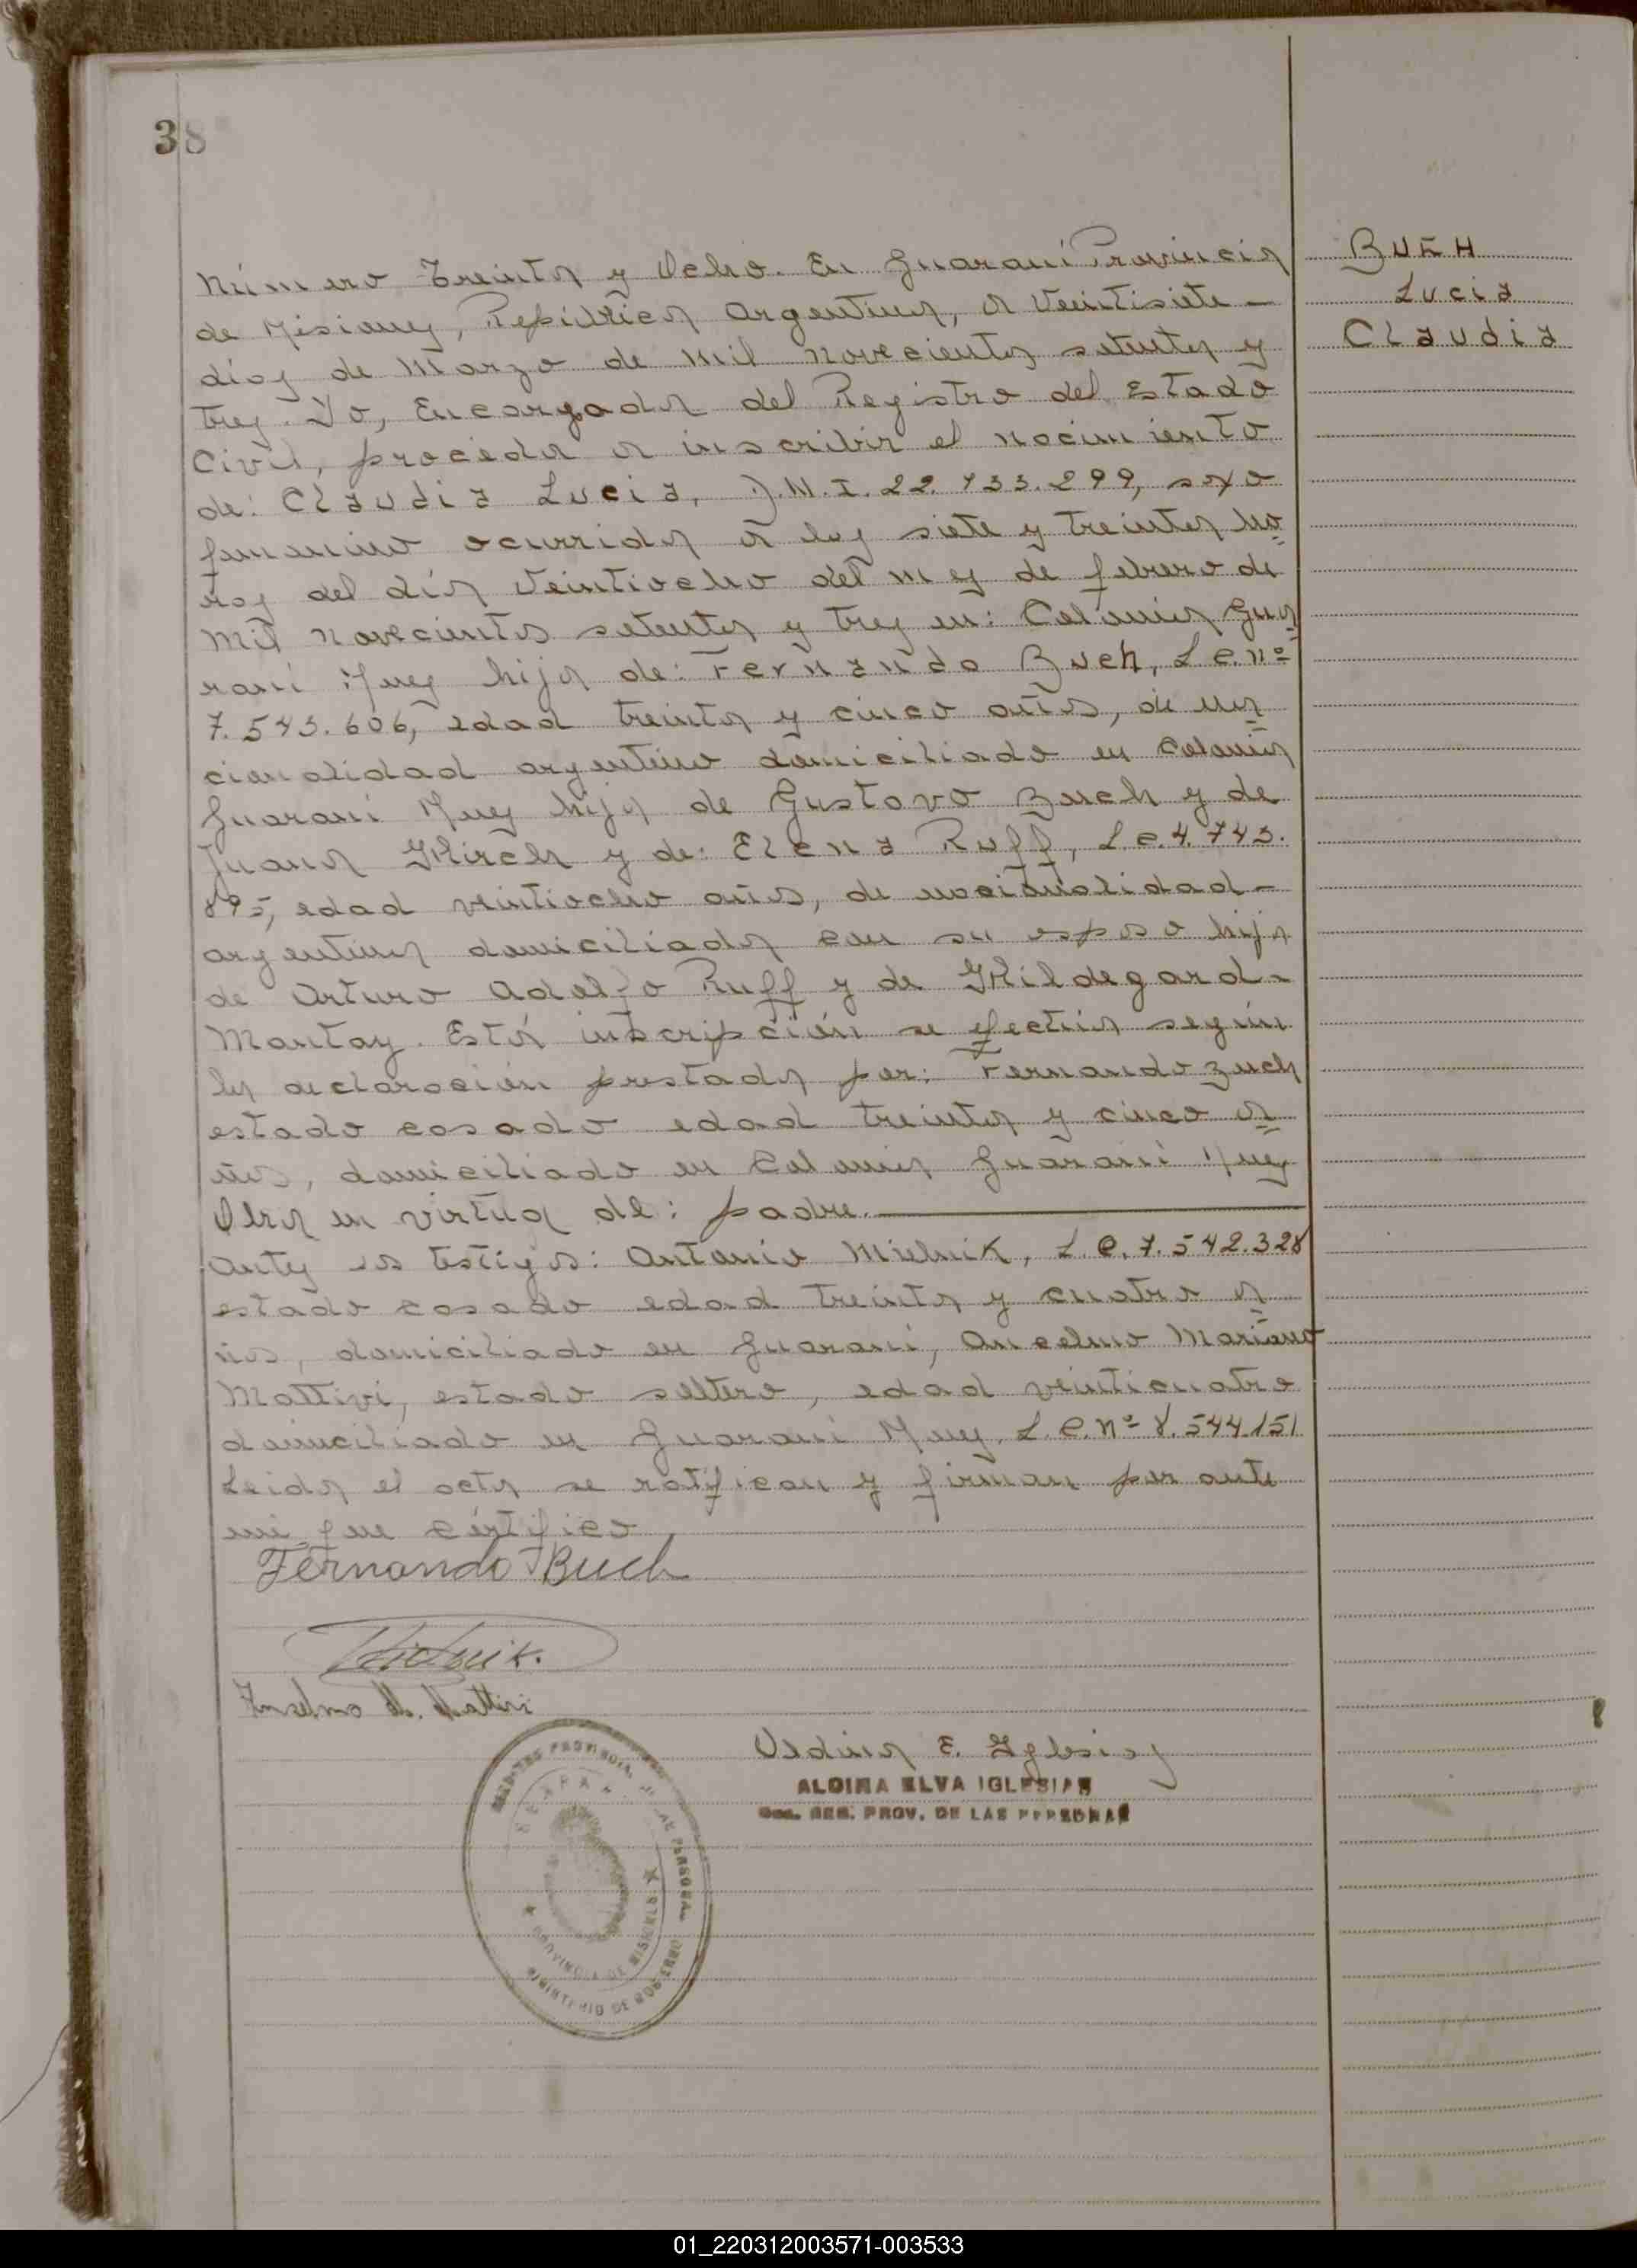 38
BUCH
Lucia
Claudia
Número Treinta y Ocho. En Guaraní Provincia
de Misiones, República Argentina, a Veintisiete -
días de Marzo de mil novecientos setenta y
tres. Yo, Encargada del Registro del Estado
Civil, procedo a inscribir el nacimiento
de: Claudia Lucia, D.N.I. 22.733.299, sexo
femenino ocurrido a las siete y treinta ho
ras del día Veintiocho del mes de febrero de
mil novecientos setenta y tres en: Colonia Gua
raní Mnes hija de: Fernando Buch, L.E. nº
7.543.606, edad treinta y cinco años, de na
cionalidad argentino domiciliado en Colonia
Guaraní Mnes hijo de Gustavo Buch y de
Juana Hirch y de: Elena Ruff, L.C. 4.743.
895, edad veintiocho años, de nacionalidad -
argentina domiciliada con su esposo hija
de Arturo Adolfo Ruff y de Hildegard -
Montay. Esta inscripción se efectúa según
la declaración prestada por: Fernando Buch
estado casado edad treinta y cinco a
ños, domiciliado en Colonia Guaraní Mnes
Obra en virtud de: padre.
Antes los testigos: Antonio Mielnik, L.E. 7.542.328
estado casado edad treinta y cuatro a
ños, domiciliado en Guaraní, Ancelmo Mariano
Mattivi, estado soltero, edad veinticuatro
domiciliado en Guaraní Mnes. L.E. nº 8.544.151
Leída el acta se ratifican y firman por ante
mi que certifico
Fernando Buch
Mielnik.
Anselmo M. Mattivi
Aldina E. Iglesias
ALDINA ELVA IGLESIAS
REG. PROV. DE LAS PERSONAS
REGISTRO PROVINCIAL DE LAS PERSONAS
GUARANI
PROVINCIA DE MISIONES
MINISTERIO DE GOBIERNO
01_220312003571-003533